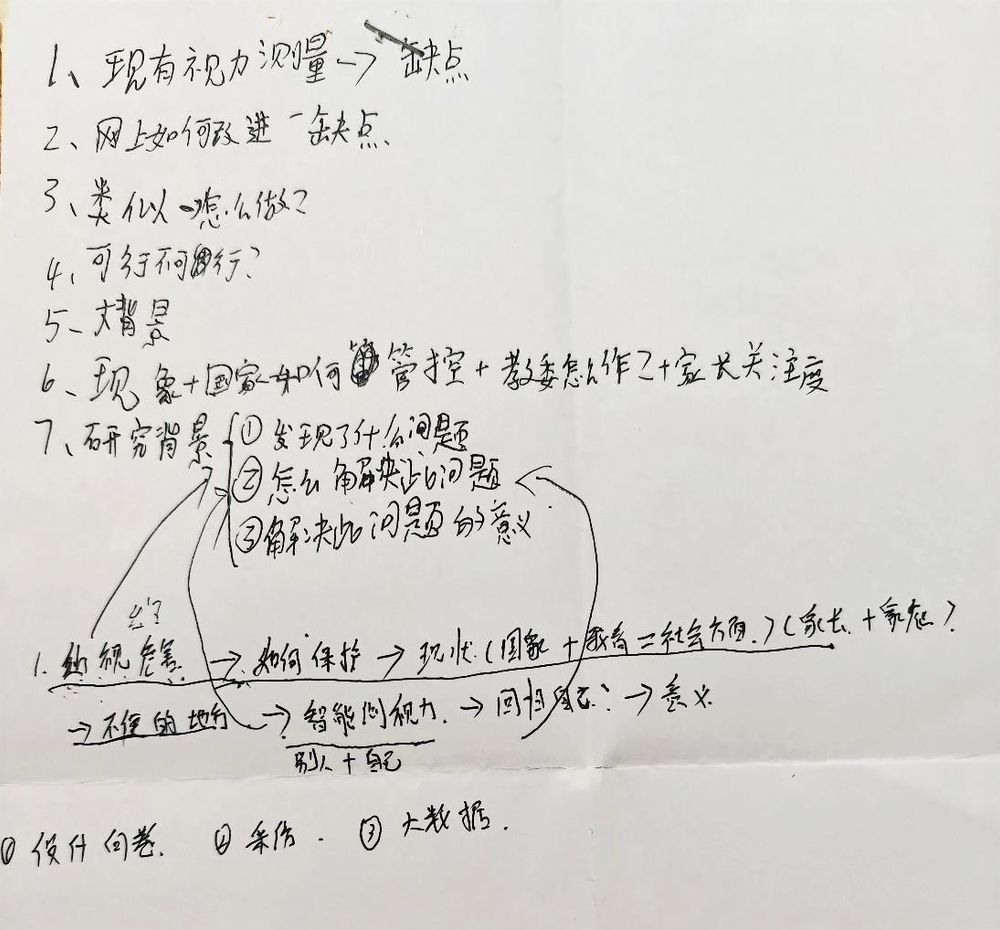 1、现有视力测量→缺点
2、网上如何改进-缺点.
3、类似-怎么做?
4、可行不可行?
5、大背景
6、现象+国家如何管控+教委怎么作?+家长关注度
7、研究背景 ①发现了什么问题
②怎么解决此问题
③解决此问题的意义
1. 视危害→如何保护→现状(国家+教育=社会方面.)(家长+家庭)?
→不便的地方→智能测视力.→回归自己:→意义
别人+自己
①设计问卷. ②采访. ③大数据.